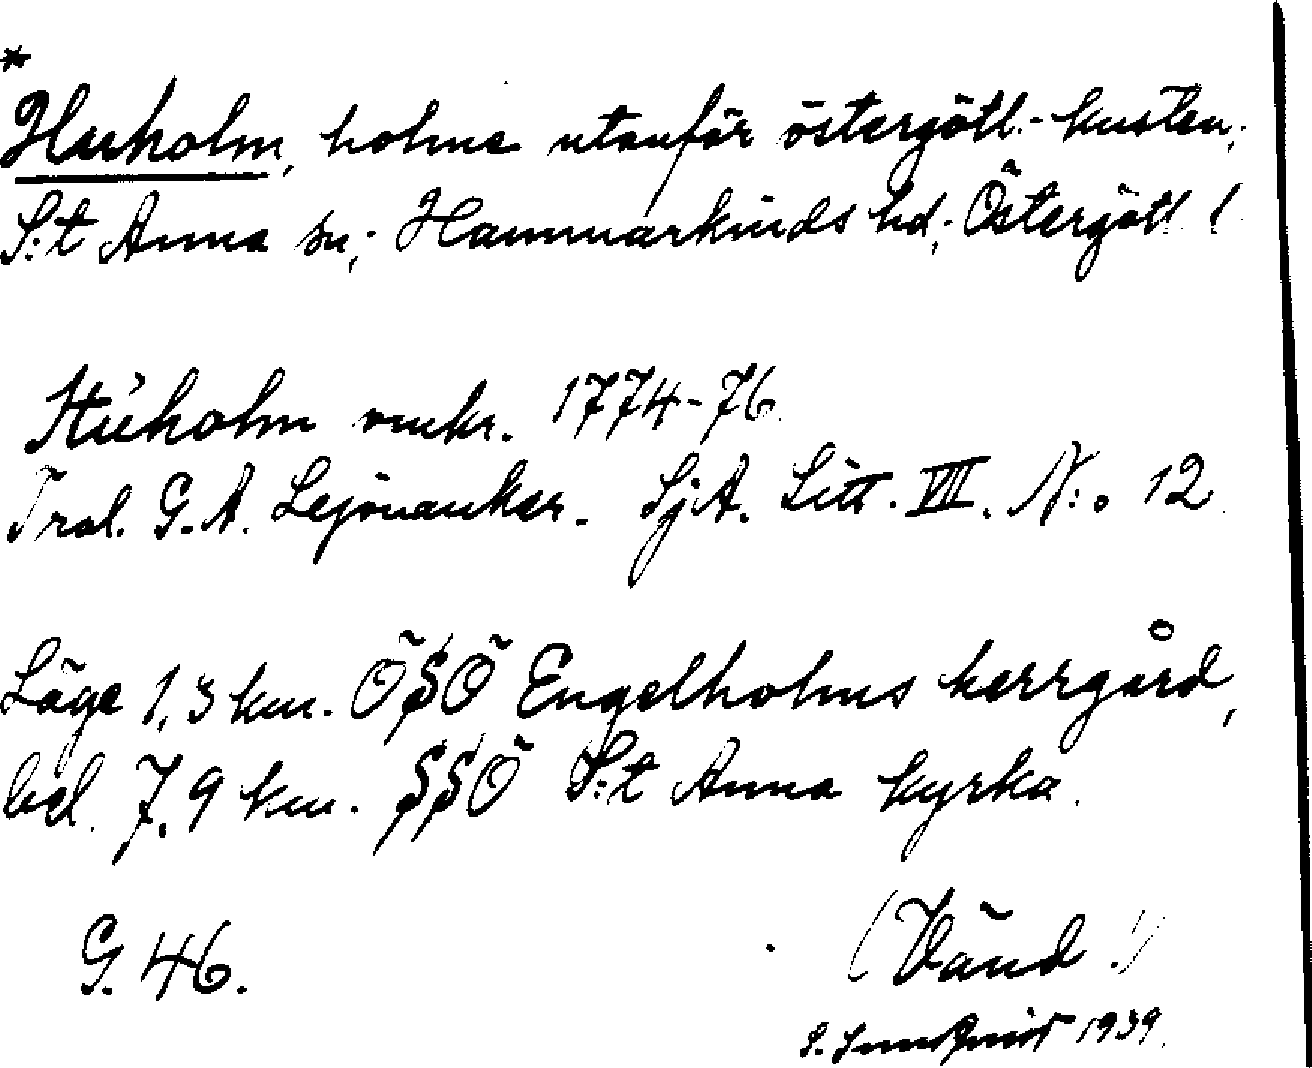 *
Huholm, holme utanför östergötl.-kusten,
S:t Anna sn; Hammarkinds hd; Östergötl.
Huholm 1774-76.
Trol. G. A. Lejonanker. SjA. Litt. VIII. N:o 12
Läge 1,3 km. ÖSÖ Engelholms herrgård,
bel. 7,9 km. SSÖ S:t Anna kyrka.
G. 46.
(Vänd!)
1939.